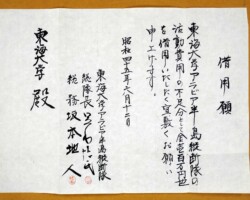 借用願
東海大学アラビア半島縦断隊の
活動費用の不足分として金壱百万円也
を借用いただきたく宜敷くお願い
申し上げます。
昭和四十五年七月十三日
東海大学アラビア半島縦断隊
隊隊長
総務 坂本地人
東海大学 殿